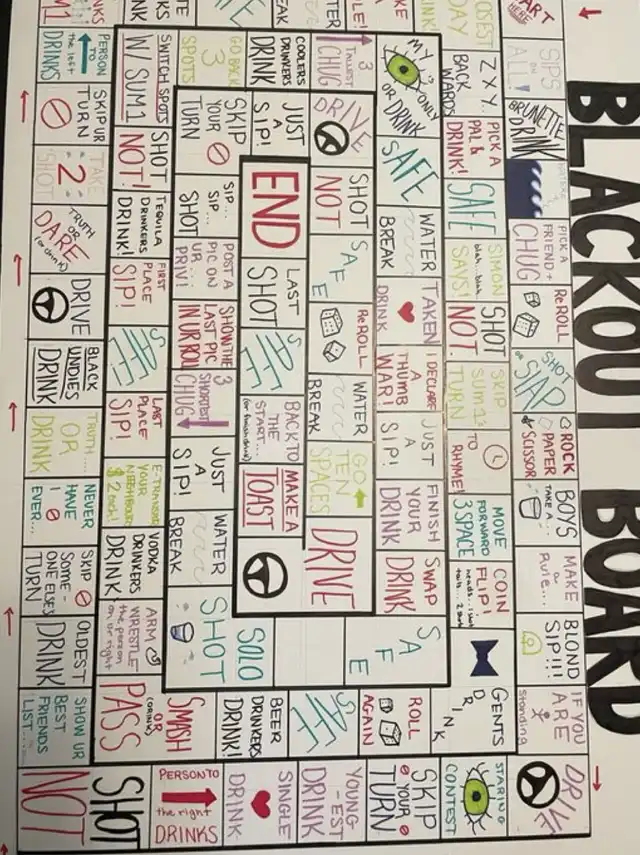 BLACKOUT BOARD
START
HERE
SIPS
ON
ALL!
BRUNETTE
DRINK
PICK A
FRIEND +
CHUG
ReROLL
SHOT
OR
SLAP
ROCK
PAPER
SCISSOR
BOYS
TAKE A..
MAKE
a
RULE...
BLOND
SIP!!!
IF YOU
ARE
Standing
DRIVE
STARING
CONTEST
SKIP
YOUR
TURN
YOUNG-
EST
DRINK
SINGLE
DRINK
PERSON TO
the right
DRINKS
SHOT
NOT
SHOW UR
BEST
FRIENDS
LIST...
OLDEST
DRINK
SKIP
SOME-
ONE ELSES
TURN
NEVER
HAVE
I
EVER...
TRUTH...
OR
DRINK
BLACK
UNDIES
DRINK
DRIVE
TRUTH
OR
DARE
(or drink)
TAKE
2
SHOT
SKIP UR
TURN
PERSON
TO
the left
DRINKS
CLOSEST
DAY
Z X Y..
BACK
WARDS
PICK A
PAL &
DRINK!
SAFE
SIMON
blah..blah..
SAYS!
SHOT
NOT.
SKIP
SUM1'S
TURN
TO
RHYME!
MOVE
FORWARD
3 SPACE
COIN
FLIP!
GENTS
DRINK
ROLL
AGAIN
SAFE
BEER
DRINKERS
DRINK!
SMSH
OR
(DRINK)
PASS
ARM
WRESTLE
the person
on ur right
VODKA
DRINKERS
DRINK
E-TRANSFER
YOUR
NEIGHBOUR
$2 each!
LAST
PLACE
SIP!
SAFE
FIRST
PLACE
SIP!
TEQUILA
DRINKERS
DRINK!
SHOT
NOT!
SWITCH SPOTS
W/ SUM1
GO BACK
3
SPOTS
COOLERS
DRINKERS
DRINK
3
TALLEST
CHUG
MY
EYES
ONLY
OR DRINK
SAFE
WATER
BREAK
TAKEN
DRINK
I DECLARE
A
THUMB
WAR!
JUST
A
SIP!
FINISH
YOUR
DRINK
SWAP
DRINK
SAFE
SOLO
SHOT
WATER
BREAK
JUST
A
SIP!
3
SHORTEST
CHUG
SHOW THE
LAST PIC
IN UR ROLL
POST A
PIC ON
UR...
PRIV!
SIP...
SIP...
SHOT
SKIP
YOUR
TURN
JUST
A
SIP!
DRIVE
SHOT
NOT
SAFE
ReROLL
WATER
BREAK
GO
TEN
SPACES
DRIVE
MAKE A
TOAST
BACK TO
THE
START...
(or finish drink)
SAFE
LAST
SHOT
END